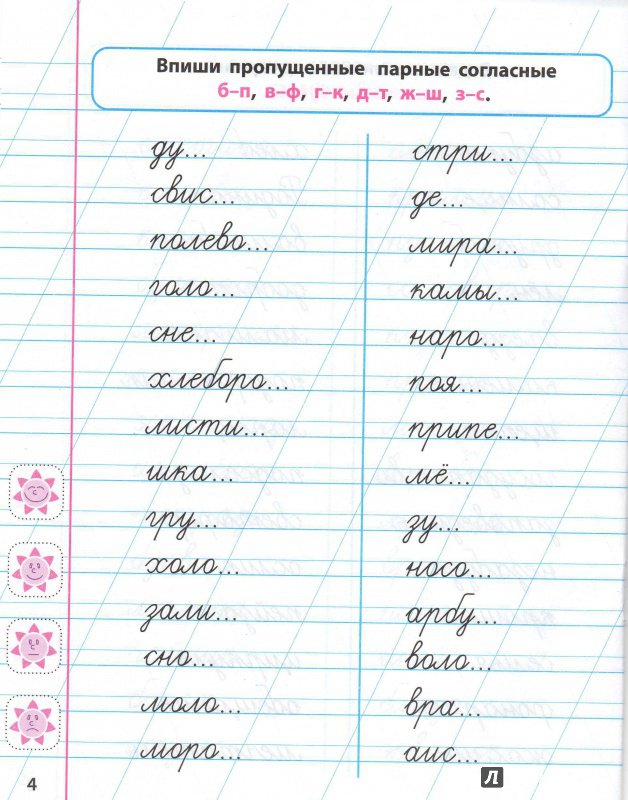 Впиши пропущенные парные согласные
б–п, в–ф, г–к, д–т, ж–ш, з–с.
ду...
свис...
полево...
голо...
сне...
хлеборо...
листи...
шка...
гру...
холо...
зали...
сно...
моло...
моро...
стри...
де...
мира...
камы...
наро...
поя...
припе...
мё...
зу...
носо...
арбу...
воло...
вра...
аис...
4
Л